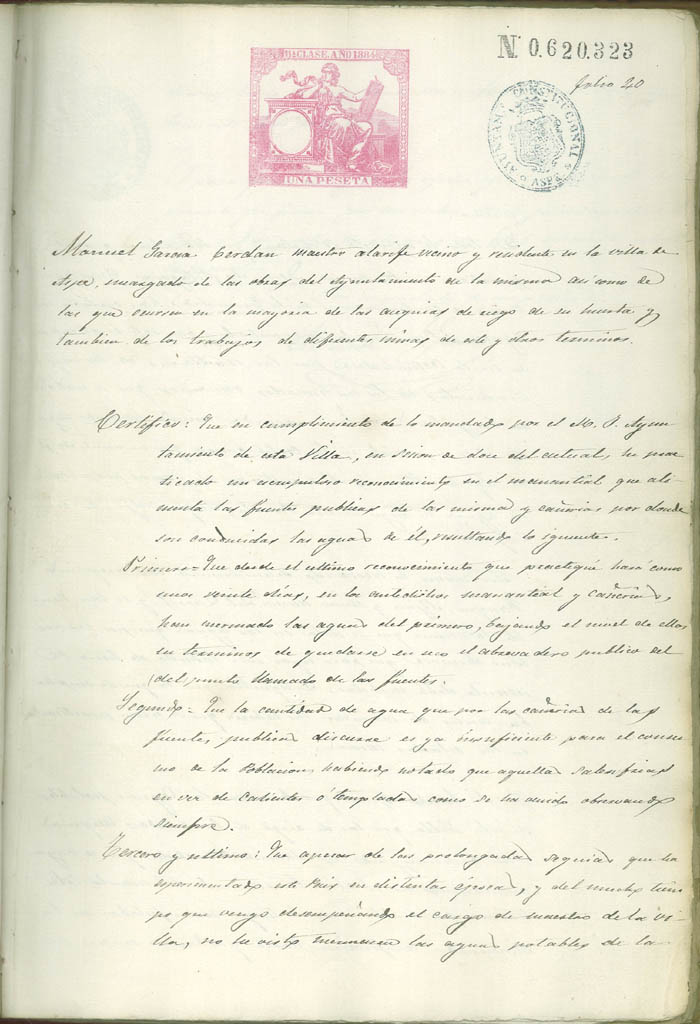 11ª CLASE. AÑO 1884
UNA PESETA
Nº 0.620.323
Julio 20
AYUNTAMTO CONSTITUCIONAL
ASPE
Manuel Garcia Cerdan maestro alarife vecino y residente en la villa de
Aspe, encargado de las obras del Ayuntamiento de la misma asi como de
las que ocurren en la mayoria de las acequias de riego de su huerta y
tambien de los trabajos de diferentes minas de este y otros terminos.
Certifico: Que en cumplimiento de lo mandado por el M. I. Ayun-
tamiento de esta Villa, en sesion de doce del actual, he prac-
ticado un escrupuloso reconocimiento en el manantial que ali-
menta las fuentes publicas de las misma y cañerias por donde
son conducidas las aguas de él, resultando lo siguiente.
Primero = Que desde el ultimo reconocimiento que practiqué hará como
unos veinte dias, en la antedicho manantial y cañerias,
han mermado las aguas del primero, bajando el nivel de ellas
en terminos de quedarse en seco el abrevadero publico del
(del punto llamado de las fuentes.
Segundo = Que la cantidad de agua que por las cañerias de las
fuentes publicas discurre es ya insuficiente para el consu-
mo de la Poblacion, habiendo notado que aquellas salen frias
en vez de calientes ó templadas como se ha venido observando
siempre.
Tercero y ultimo: Que apesar de las prolongadas sequias que ha
esperimentado este Pais en distintas épocas, y del mucho tiem-
po que vengo desempeñando el cargo de maestro de la Vi-
lla, no he visto las aguas potables de la